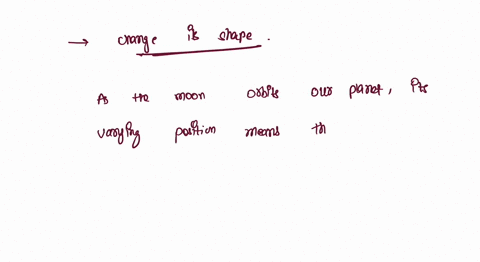 → change is shape.
As the moon orbits our planet, its
varying position means th